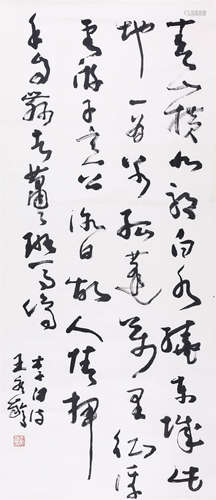 青山横北郭白水绕东城此
地一为别孤蓬万里征浮
云游子意落日故人情挥
手自兹去萧萧班马鸣
李白诗